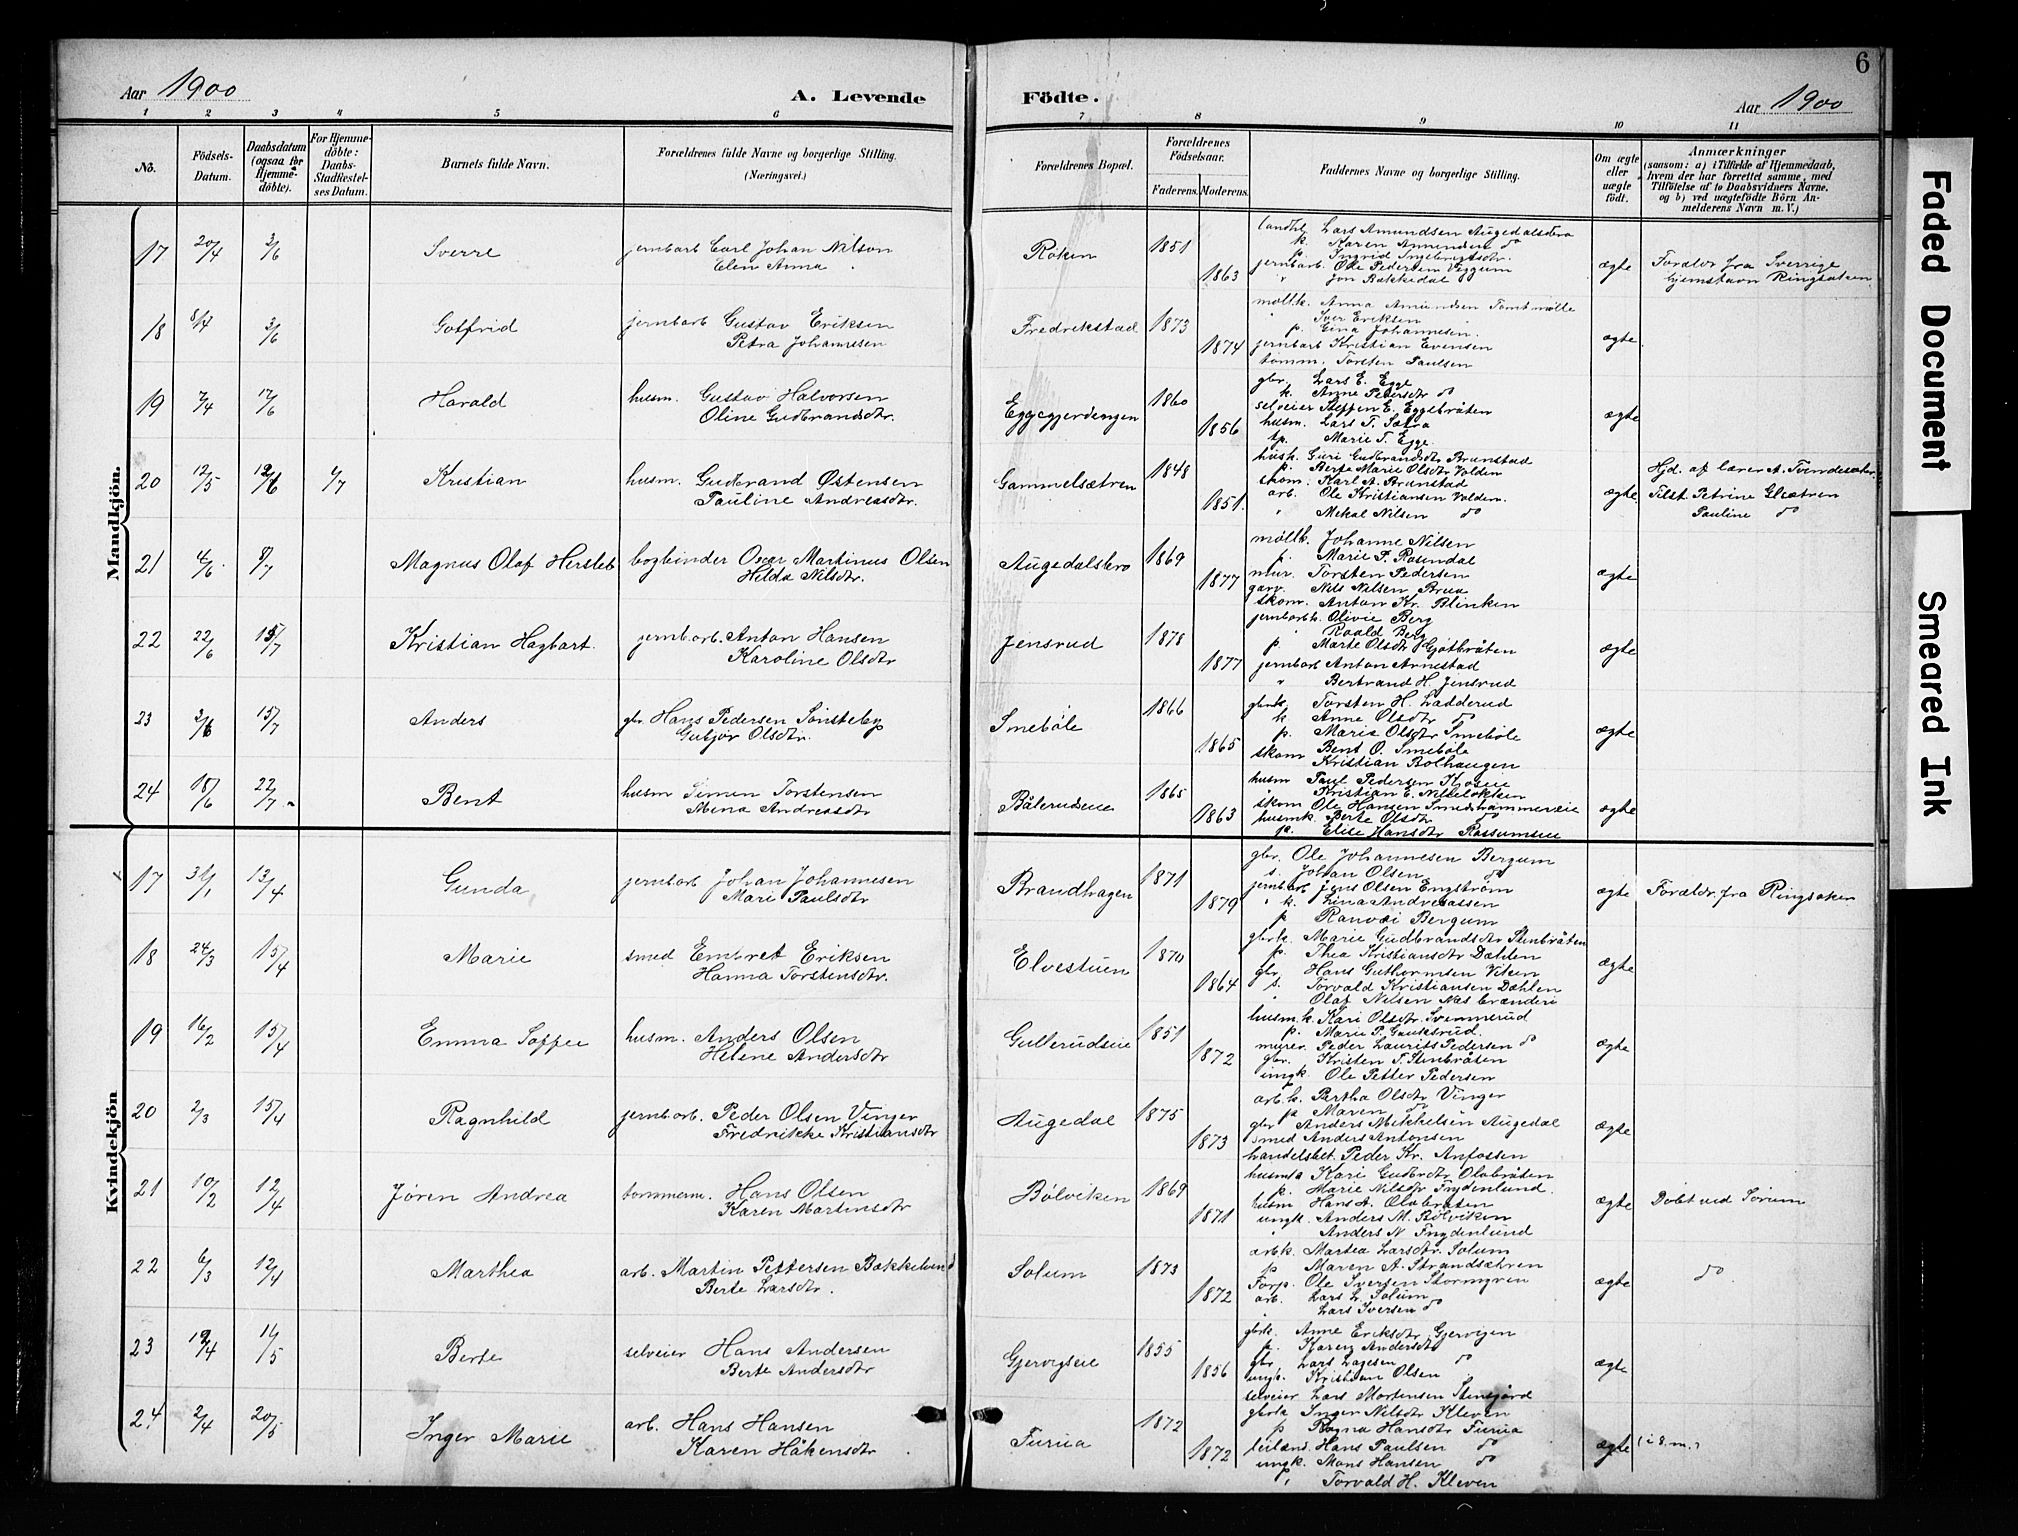 6
Aar 1900
A. Levende
Födte.
Aar 1900
1 2 3 4 5 6 7 8 9 10 11
No.
Födsels-Datum.
Daabsdatum (ogsaa for Hjemme-döbte).
For Hjemme-döbte: Daabs-Stadfestel-ses Datum.
Barnets fulde Navn.
Forældrenes fulde Navne og borgerlige Stilling. (Næringsvei.)
Forældrenes Bopæl.
Forældrenes Födselsaar.
Faderens. Moderens.
Faddernes Navne og borgerlige Stilling.
Om ægte eller uægte födt.
Anmærkninger
(saasom: a) i Tilfælde af Hjemmedaab, hvem der har forrettet samme, med Tilföielse af to Daabsvidners Navne. og b) ved uægtefödte Börn An-melderens Navn m. V.)
Mandkjön.
17 20/4 3/6 Sverre jernbarb Carl Johan Nilson
Elen Anna
Röken 1851 1863
landhl Lars Amundsen Augedalsbro
k. Karen Amundsen do
p. Ingrid Ingebrigtsdr.
jernbarb. Ole Pedersen Viggum
" Jon Bækkedal do
ægte Forældr fra Sverrige
hjemstavn Ringsaken
18 8/4 3/6 Gotfrid jernbarb Gustav Eriksen
Petra Johannesen
Fredrikstad 1873 1874
møllk. Anna Amundsen Tomtmølle
" Iver Eriksen
p. Gina Johannesen.
jernbarb Kristian Evensen
tømm. Torsten Paulsen
ægte
19 7/4 17/6 Harald husm. Gustav Halvorsen
Oline Gudbrandsdtr.
Eggegjerdengen 1860 1856
gbr. Lars E. Egge
k. Anne Pedersdtr do
selveier Steffen E. Eggebråten
husm. Lars T. Sætra
tp. Marie T. Egge
ægte
20 12/5 /6 1/7 Kristian husm. Gudbrand Østensen
Pauline Andreasdtr.
Gammelsætren 1848 1851.
husk. Guri Gudbrandsdtr Brunstad
p. Berte Marie Olsdtr Volden
skom. Karl A. Brunstad
arb. Ole Kristiansen Volden.
" Mekal Nilsen do
ægte Hjd. af lærer A. Tvendesæter.
Tilst. Petrine Glsætren
Pauline do
21 4/6 8/7 Magnus Olaf Hersleb bogbinder Oscar Martinus Olsen
Hilda Nilsdtr.
Augedalsbro 1869 1877
møllk. Johanne Nilsen
p. Marie P. Rosendal
mur. Torsten Pedersen
garv. Nils Nilsen Brua
skom. Anton Kr. Blinken
ægte
22 22/6 15/7 Kristian Hagbart. jernbarb. Anton Hansen
Karoline Olsdtr
Jensrud 1878 1877
jernbarb k. Olivie Berg
" Roald Berg
p. Marte Olsdtr Gjötbråten
jernbarb Anton Arnestad
" Bertrand H. Jensrud
ægte
23 3/6 15/7 Anders gbr. Hans Pedersen Sönsteby
Gubjör Olsdtr.
Smeböle 1866 1865
gbrk. Torsten H. Ladderud
k. Anne Olsdtr do
p. Marie Olsdtr Smeböle
skom Bent O. Smeböle
Kristian Bolhaugen
ægte
24 18/6 22/7 Bent husm Simen Torstensen
Mina Andreasdtr
Bålerudseie 1865 1863
husm Paul Pedersen Hoseie
" Kristian E. Nilseløkken
skom Ole Hansen Smedshammereie
husmk. Berte Olsdtr do
p. Elise Hansdtr Rossumseie
ægte
Kvindekjön
17 31/1 13/4 Gunda jernbarb Johan Johannesen
Mari Paulsdtr
Brandhagen 1871 1879
gbr. Ole Johannesen Bergum
s. Johan Olsen do
jernbarb Jens Olsen Engström
" k. Lina Andreassen
p Ranvei Bergum
ægte Forældr. fra Ringsaker
18 24/3 15/4 Marie smed Embret Eriksen
Hanna Torstensdtr.
Elvestuen 1870 1864
gbrk. Marie Gudbrandsdtr Stenbråten
p. Thea Kristiansdtr Dæhlen
gbr. Hans Guthormsen Viken
s. Torvald Kristiansen Dæhlen
" Olaf Nilsen Næs brænderi
ægte
19 16/2 15/4 Emma Soffie husm. Anders Olsen
Helene Andersdtr
Gullerudseie 1851 1872
husm.k. Kari Olsdtr. Svennerud
p. Marie P. Gauksrud.
murer. Peder Laurits Pedersen do
gbr. Kristen T. Stenbråten
ungk. Ole Petter Pedersen
ægte
20 2/3 15/4 Ragnhild jernb.arb. Peder Olsen Vinger
Fredrikke Kristiansdtr
Augedal 1875 1873
arb.k. Bertha Olsdtr Vinger
p Maren do
gbr Anders Mikkelsen Augedal
smed Anders Antonsen
handelsbet. Peder Kr. Antossen
ægte
21 10/2 12/4 Jören Andrea tømmerm. Hans Olsen
Karen Martinsdtr
Bölviken 1869 1871
husmk Kari Gudbrdtr Olabråten
p. Marie Nilsdtr Frydenlund.
husm Hans A. Olabråten
ungk. Anders M. Bölviken
" Anders N Frydenlund
ægte Döbt ved Sörum
22 6/3 12/4 Marthea arb. Martin Pettersen Bækkelund
Berte Larsdtr.
Solum 1873 1872
arbk. Martea Larsdtr. Solum
p Maren A. Strandsætren
Forp. Ole Iversen Stormyren
arb. Lars L. Solum
" Lars Iversen do
ægte do
23 /4 /5 Berte selveier Hans Andersen
Berte Andersdtr
Gjervigseie 1855 1856
gbrk. Anne Eriksdtr Gjervigen
p. Karen Andersdtr
gbr. Lars Lagesen do
ungk. Kristian Olsen
selveier Lars Mortensen Stensjørd
ægte
24 2/4 20/5 Inger Marie arb. Hans Hansen
Karen Håkensdtr
Furua 1872 1872
gbrk Inger Nilsdtr Kleven
p Ragna Hansdtr Furua
leilænd. Hans Paulsen do
ungk. Mons Hansen do
p. Torvald H. Kleven
ægte (i S.m.)
Faded Document
Smeared Ink